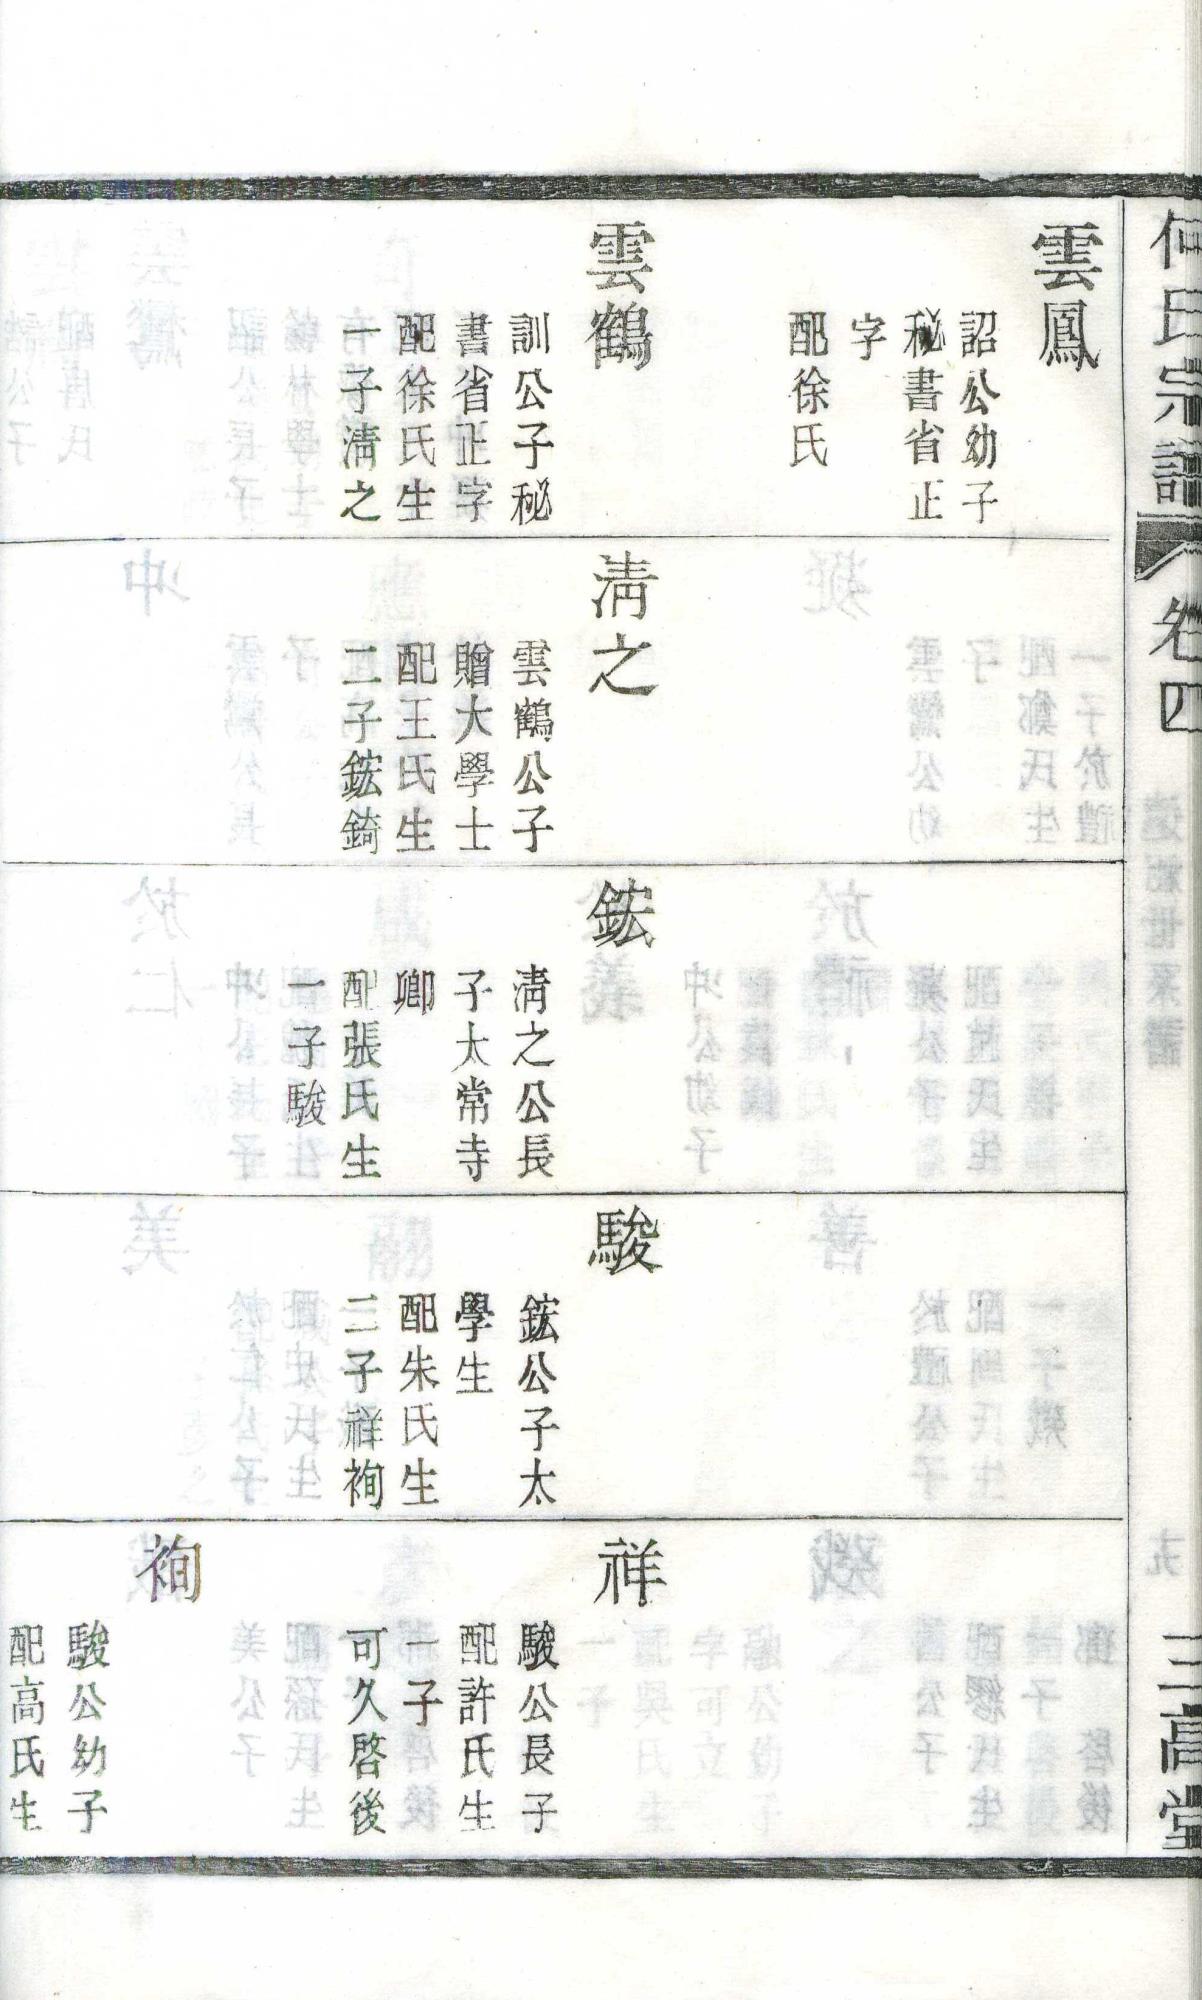 何氏宗譜
卷四
三高堂
雲鳳
詔公幼子
秘書省正
字
配徐氏
雲鶴
訓公子秘
書省正字
配徐氏生
一子淸之
淸之
雲鶴公子
贈大學士
配王氏生
二子鋐錡
鋐
淸之公長
子太常寺
卿
配張氏生
一子駿
駿
鋐公子太
學生
配朱氏生
二子祥祹
祥
駿公長子
配許氏生
一子
可久啓後
祹
駿公幼子
配高氏生